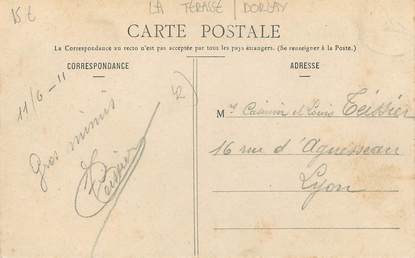 15€
LA TERASSE / DORLAY
CARTE POSTALE
La Correspondance au recto n'est pas acceptée par tous les pays étrangers. (Se renseigner à la Poste.)
CORRESPONDANCE
ADRESSE
11/6-11
Gros mimis
Teissier
M rs Casimir et Louis Teissier
16 rue d'Aguesseau
Lyon